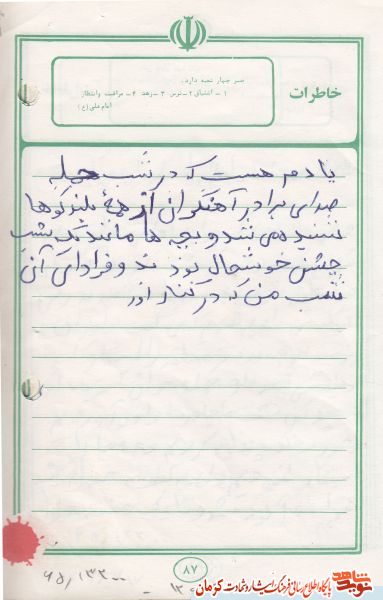 خاطرات
صبر چهار شعبه دارد.
۱ – اشتیاق ۲ – ترس ۳ – زهد ۴ – مراقبت وانتظار
امام علی (ع)
یادم هست که در شب حمله
صدای برادر آهنگران از همهٔ بلندگوها
شنیده می شد و بچه ها مانند یک شب
جشن خوشحال بودند و فردای آن
شب من که در کنار اور
۸۷
۶۵/۱۳۲۰۰
پایگاه اطلاع رسانی فرهنگ ایثار و شهادت کرمان
نوید شاهد